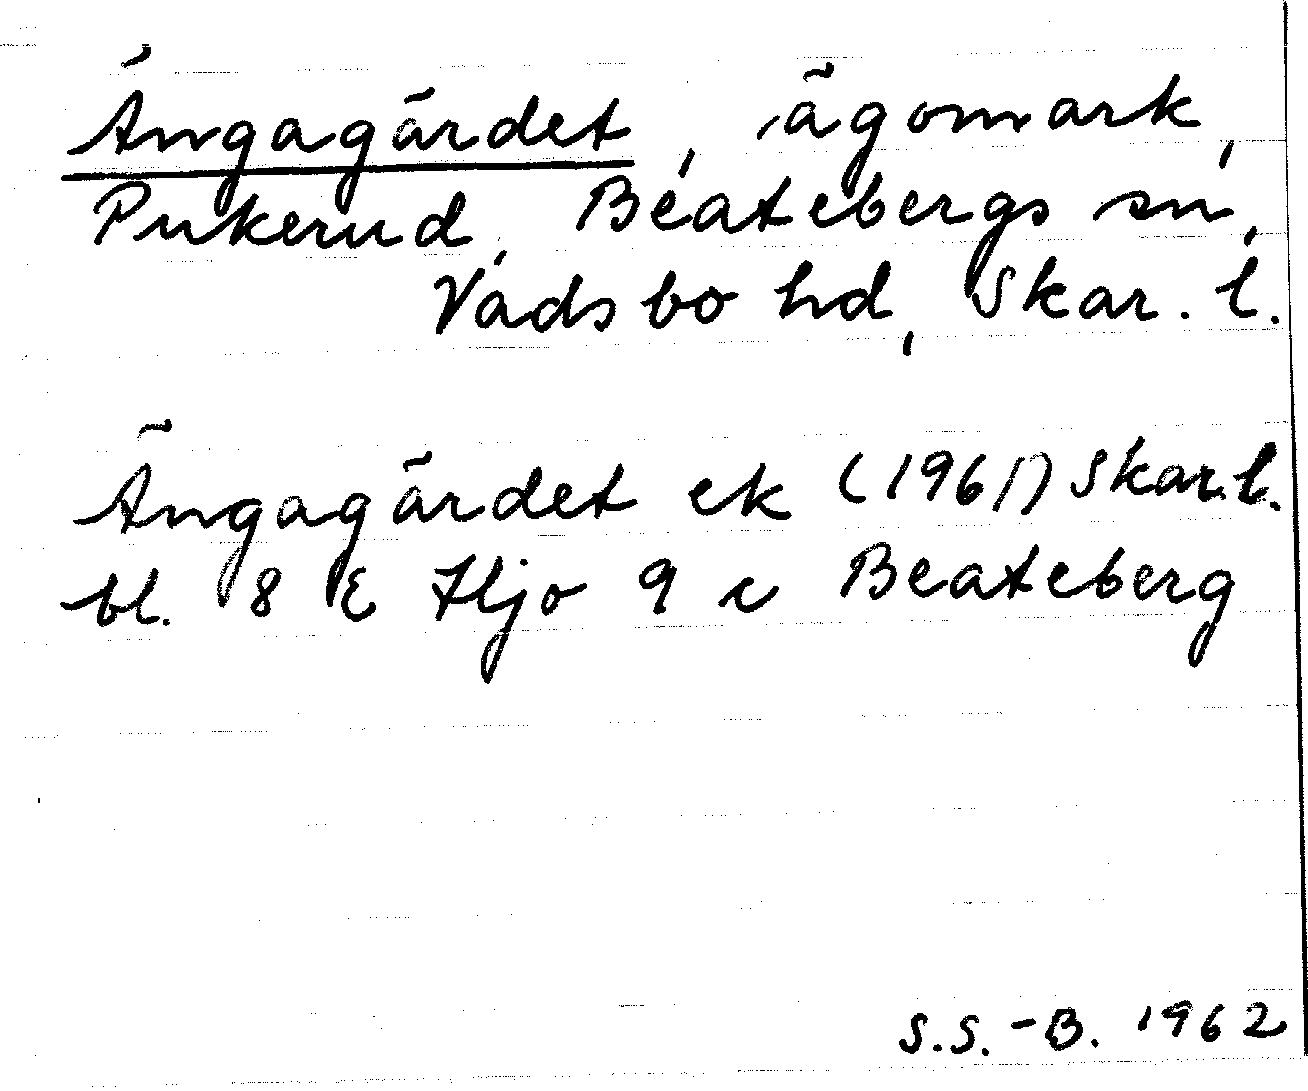 Ängagärdet, ägomark,
Pukerud, Beatebergs sn,
Vadsbo hd, Skar. l.
Ängagärdet ek (1961) Skar. l.
bl. 8 E Hjo 9 c Beateberg
S.S.-B. 1962